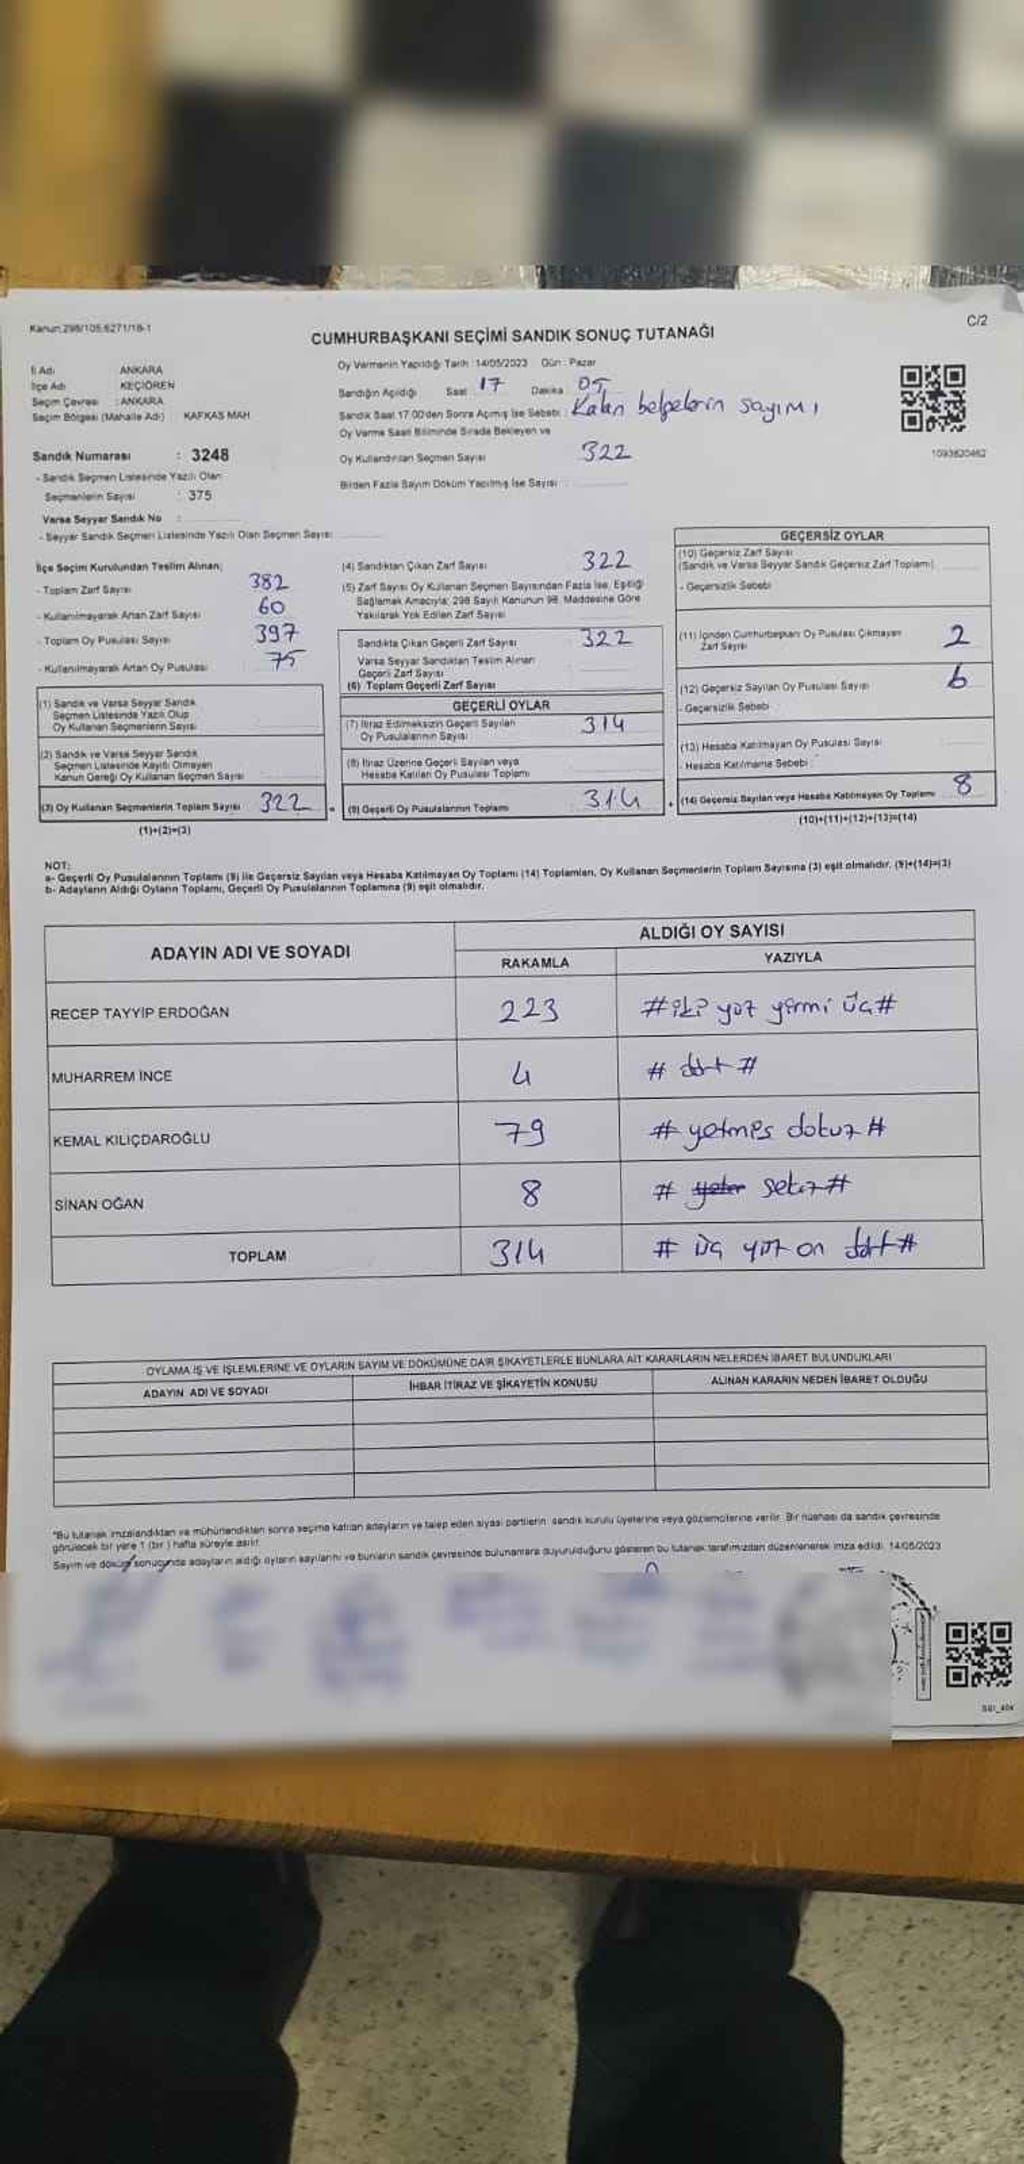 Kanun:298/105.6271/18-1
C/2
CUMHURBAŞKANI SEÇİMİ SANDIK SONUÇ TUTANAĞI
İl Adı ANKARA
İlçe Adı KEÇİÖREN
Seçim Çevresi : ANKARA
Seçim Bölgesi (Mahalle Adı) KAFKAS MAH
Sandık Numarası : 3248
- Sandık Seçmen Listesinde Yazılı Olan
Seçmenlerin Sayısı : 375
Varsa Seyyar Sandık No :
- Seyyar Sandık Seçmen Listesinde Yazılı Olan Seçmen Sayısı
Oy Vermenin Yapıldığı Tarih : 14/05/2023 Gün : Pazar
Sandığın Açıldığı Saat 17 Dakika 05
Sandık Saat 17:00'den Sonra Açmış İse Sebebi : Kalan belgelerin sayımı
Oy Verme Saati Bitiminde Sırada Bekleyen ve
Oy Kullandırılan Seçmen Sayısı 322
Birden Fazla Sayım Döküm Yapılmış İse Sayısı
1093620462
İlçe Seçim Kurulundan Teslim Alınan;
- Toplam Zarf Sayısı 382
- Kullanılmayarak Artan Zarf Sayısı 60
- Toplam Oy Pusulası Sayısı 397
- Kullanılmayarak Artan Oy Pusulası 75
(1) Sandık ve Varsa Seyyar Sandık
Seçmen Listesinde Yazılı Olup
Oy Kullanan Seçmenlerin Sayısı
(2) Sandık ve Varsa Seyyar Sandık
Seçmen Listesinde Kayıtlı Olmayan
Kanun Gereği Oy Kullanan Seçmen Sayısı
(3) Oy Kullanan Seçmenlerin Toplam Sayısı 322
(1)+(2)=(3)
(4) Sandıktan Çıkan Zarf Sayısı 322
(5) Zarf Sayısı Oy Kullanan Seçmen Sayısından Fazla İse, Eşitliği
Sağlamak Amacıyla; 298 Sayılı Kanunun 98. Maddesine Göre
Yakılarak Yok Edilen Zarf Sayısı
Sandıkta Çıkan Geçerli Zarf Sayısı 322
Varsa Seyyar Sandıktan Teslim Alınan
Geçerli Zarf Sayısı
(6) Toplam Geçerli Zarf Sayısı
GEÇERLİ OYLAR
(7) İtiraz Edilmeksizin Geçerli Sayılan
Oy Pusulalarının Sayısı 314
(8) İtiraz Üzerine Geçerli Sayılan veya
Hesaba Katılan Oy Pusulası Toplamı
(9) Geçerli Oy Pusulalarının Toplamı 314
GEÇERSİZ OYLAR
(10) Geçersiz Zarf Sayısı
(Sandık ve Varsa Seyyar Sandık Geçersiz Zarf Toplamı)
- Geçersizlik Sebebi
(11) İçinden Cumhurbaşkanı Oy Pusulası Çıkmayan
Zarf Sayısı 2
(12) Geçersiz Sayılan Oy Pusulası Sayısı 6
- Geçersizlik Sebebi
(13) Hesaba Katılmayan Oy Pusulası Sayısı
- Hesaba Katılmama Sebebi :
(14) Geçersiz Sayılan veya Hesaba Katılmayan Oy Toplamı 8
(10)+(11)+(12)+(13)=(14)
NOT:
a- Geçerli Oy Pusulalarının Toplamı (9) ile Geçersiz Sayılan veya Hesaba Katılmayan Oy Toplamı (14) Toplamları, Oy Kullanan Seçmenlerin Toplam Sayısına (3) eşit olmalıdır. (9)+(14)=(3)
b- Adayların Aldığı Oyların Toplamı, Geçerli Oy Pusulalarının Toplamına (9) eşit olmalıdır.
ADAYIN ADI VE SOYADI ALDIĞI OY SAYISI
RAKAMLA YAZIYLA
RECEP TAYYİP ERDOĞAN 223 #iki yüz yirmi üç#
MUHARREM İNCE 4 # dört #
KEMAL KILIÇDAROĞLU 79 # yetmiş dokuz #
SİNAN OĞAN 8 # sekiz #
TOPLAM 314 # üç yüz on dört #
OYLAMA İŞ VE İŞLEMLERİNE VE OYLARIN SAYIM VE DÖKÜMÜNE DAİR ŞİKAYETLERLE BUNLARA AİT KARARLARIN NELERDEN İBARET BULUNDUKLARI
ADAYIN ADI VE SOYADI İHBAR İTİRAZ VE ŞİKAYETİN KONUSU ALINAN KARARIN NEDEN İBARET OLDUĞU
*Bu tutanak imzalandıktan ve mühürlendikten sonra seçime katılan adayların ve talep eden siyasi partilerin sandık kurulu üyelerine veya gözlemcilerine verilir. Bir nüshası da sandık çevresinde
görülecek bir yere 1 (bir) hafta süreyle asılır.
Sayım ve döküm sonucunda adayların aldığı oyların sayılarını ve bunların sandık çevresinde bulunanlara duyurulduğunu gösteren bu tutanak tarafımızdan düzenlenerek imza edildi. 14/05/2023